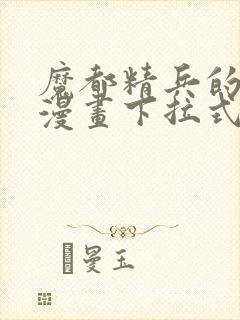 魔都精兵的
漫畫下拉式
曼玉